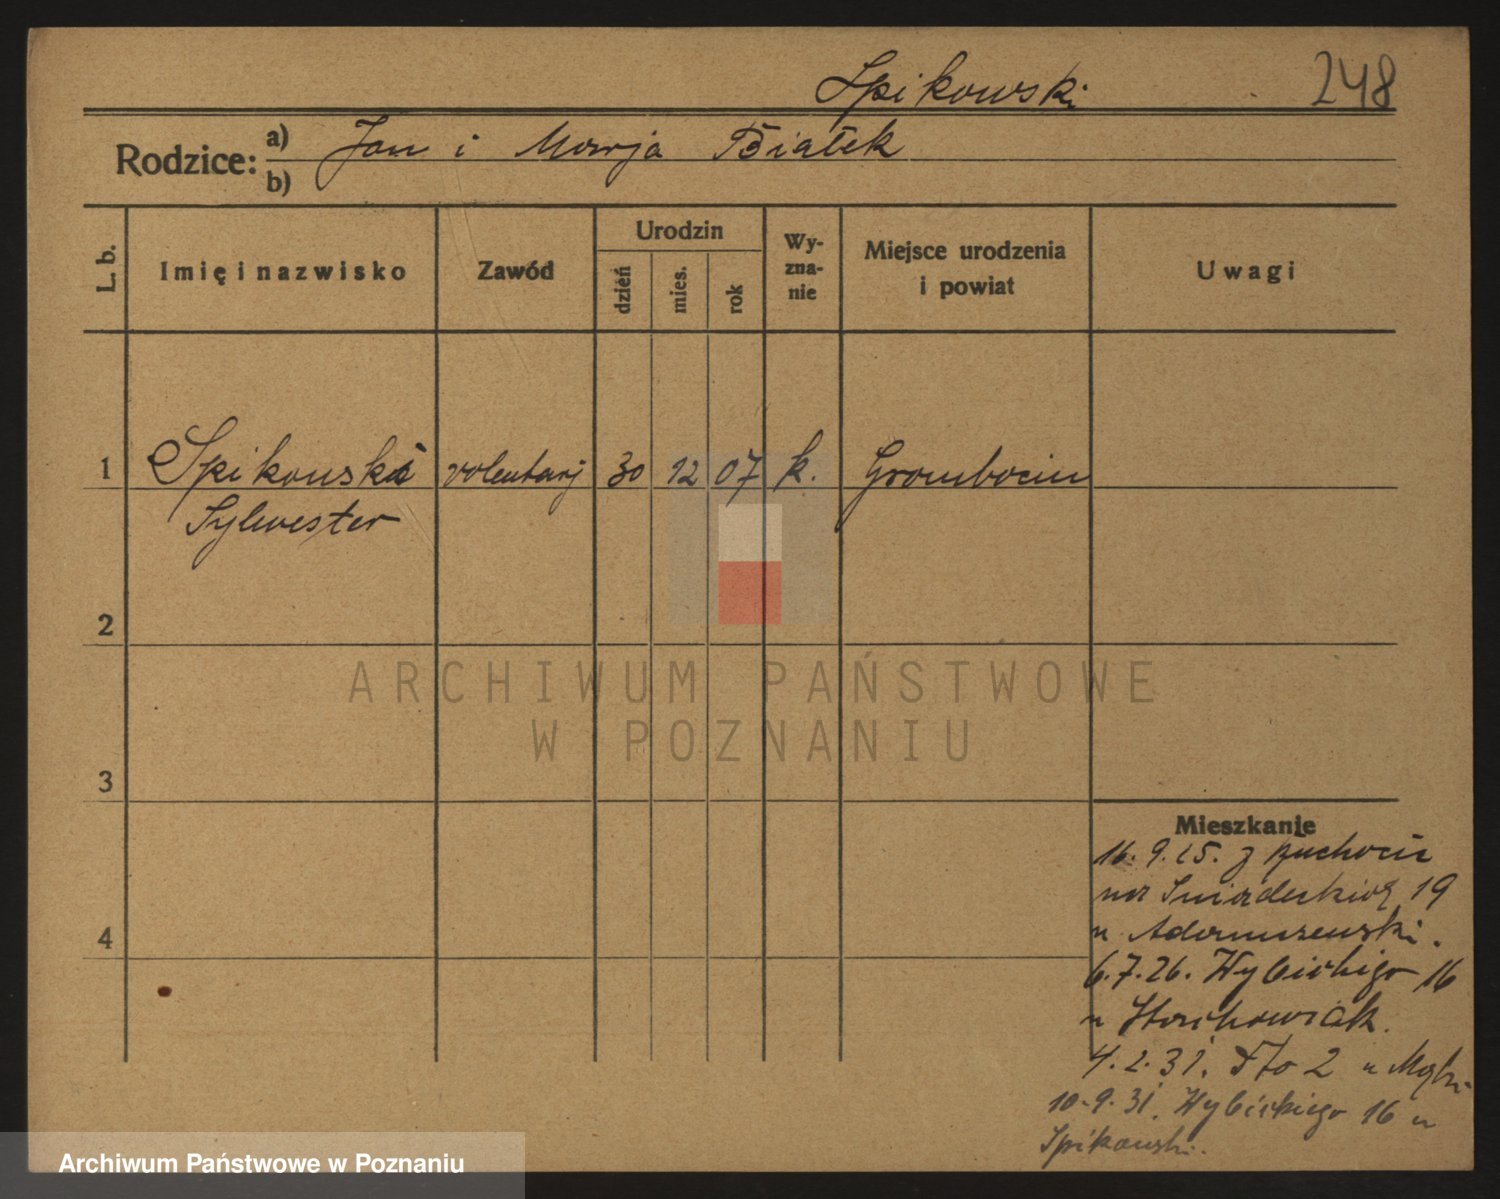 Spikowski
248
Rodzice: a) Jan i Marja Białek
b)
L. b.
Imię i nazwisko
Zawód
Urodzin
dzień
mies.
rok
Wy-
zna-
nie
Miejsce urodzenia
i powiat
Uwagi
1 Spikowski volentarj 30 12 07 k. Grombocin
Sylwester
2
3
4
Mieszkanie
16.9.25. z
na Śniadeckich 19
u Adamszewski.
6.7.26. Wybickigo 16
u
4.2.31. 2 u
10.9.31. Wybickiego 16 u
Spikowski.
ARCHIWUM PAŃSTWOWE
W POZNANIU
Archiwum Państwowe w Poznaniu